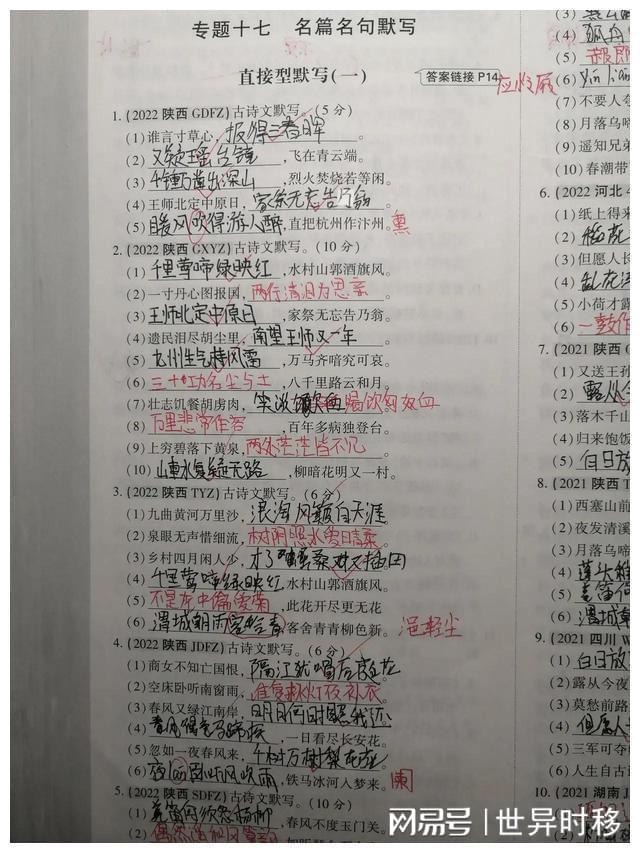 专题十七 名篇名句默写
直接型默写(一)
答案链接 P14
1.(2022 陕西 GDFZ)古诗文默写。(5 分)
(1)谁言寸草心,报得三春晖。
(2)又疑瑶台镜,飞在青云端。
(3)千锤万凿出深山,烈火焚烧若等闲。
(4)王师北定中原日,家祭无忘告乃翁
(5)暖风吹得游人醉,直把杭州作汴州。熏
2.(2022 陕西 GXYZ)古诗文默写。(10 分)
(1)千里莺啼绿映红,水村山郭酒旗风。
(2)一寸丹心图报国,两行清泪为思亲。
(3)王师北定中原日,家祭无忘告乃翁。
(4)遗民泪尽胡尘里,南望王师又一年
(5)九州生气恃风雷,万马齐喑究可哀。
(6)三十功名尘与土,八千里路云和月。
(7)壮志饥餐胡虏肉,笑谈渴饮匈奴血
(8)万里悲秋常作客,百年多病独登台。
(9)上穷碧落下黄泉,两处茫茫皆不见。
(10)山重水复疑无路,柳暗花明又一村。
3.(2022 陕西 TYZ)古诗文默写。(6 分)
(1)九曲黄河万里沙,浪淘风簸自天涯
(2)泉眼无声惜细流,树阴照水爱晴柔。
(3)乡村四月闲人少,才了蚕桑又插田
(4)千里莺啼绿映红,水村山郭酒旗风。
(5)不是花中偏爱菊,此花开尽更无花
(6)渭城朝雨客舍青青柳色新。浥轻尘
4.(2022 陕西 JDFZ)古诗文默写。(6 分)
(1)商女不知亡国恨,隔江犹唱后庭花
(2)空床卧听南窗雨,谁复挑灯夜补衣
(3)春风又绿江南岸,明月何时照我还
(4)春风得意马蹄疾,一日看尽长安花。
(5)忽如一夜春风来,千树万树梨花开
(6)夜卧听风吹雨,铁马冰河入梦来。阑
5.(2022 陕西 SDFZ)古诗文默写。(10 分)
(1)羌笛何须怨杨柳,春风不度玉门关。
(2)
(3)
(4)孤舟
(5)却
(6)
应怜屐
(7)不要人夸
(8)月落乌啼
(9)遥知兄弟
(10)春潮带
6.(2022 河北
(1)纸上得来
(2)
(3)但愿人长
(4)乱花
(5)小荷才露
(6)一鼓作
7.(2021 陕西
(1)又送王孙
(2)露从今
(3)落木千山
(4)归来饱饭
(5)白日放
8.(2021 陕西
(1)西塞山前
(2)夜发清溪
(3)月落乌啼
(4)蓬头稚
(5)羌笛何
(6)渭城朝
9.(2021 四川
(1)白日放
(2)露从今夜
(3)莫愁前路
(4)但愿人
(5)三军可夺
(6)人生自古
10.(2021 湖南
网易号 | 世异时移